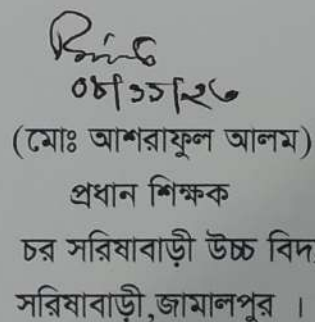 ০৮/১১/২৬
(মোঃ আশরাফুল আলম)
প্রধান শিক্ষক
চর সরিষাবাড়ী উচ্চ বিদ্য
সরিষাবাড়ী,জামালপুর ।